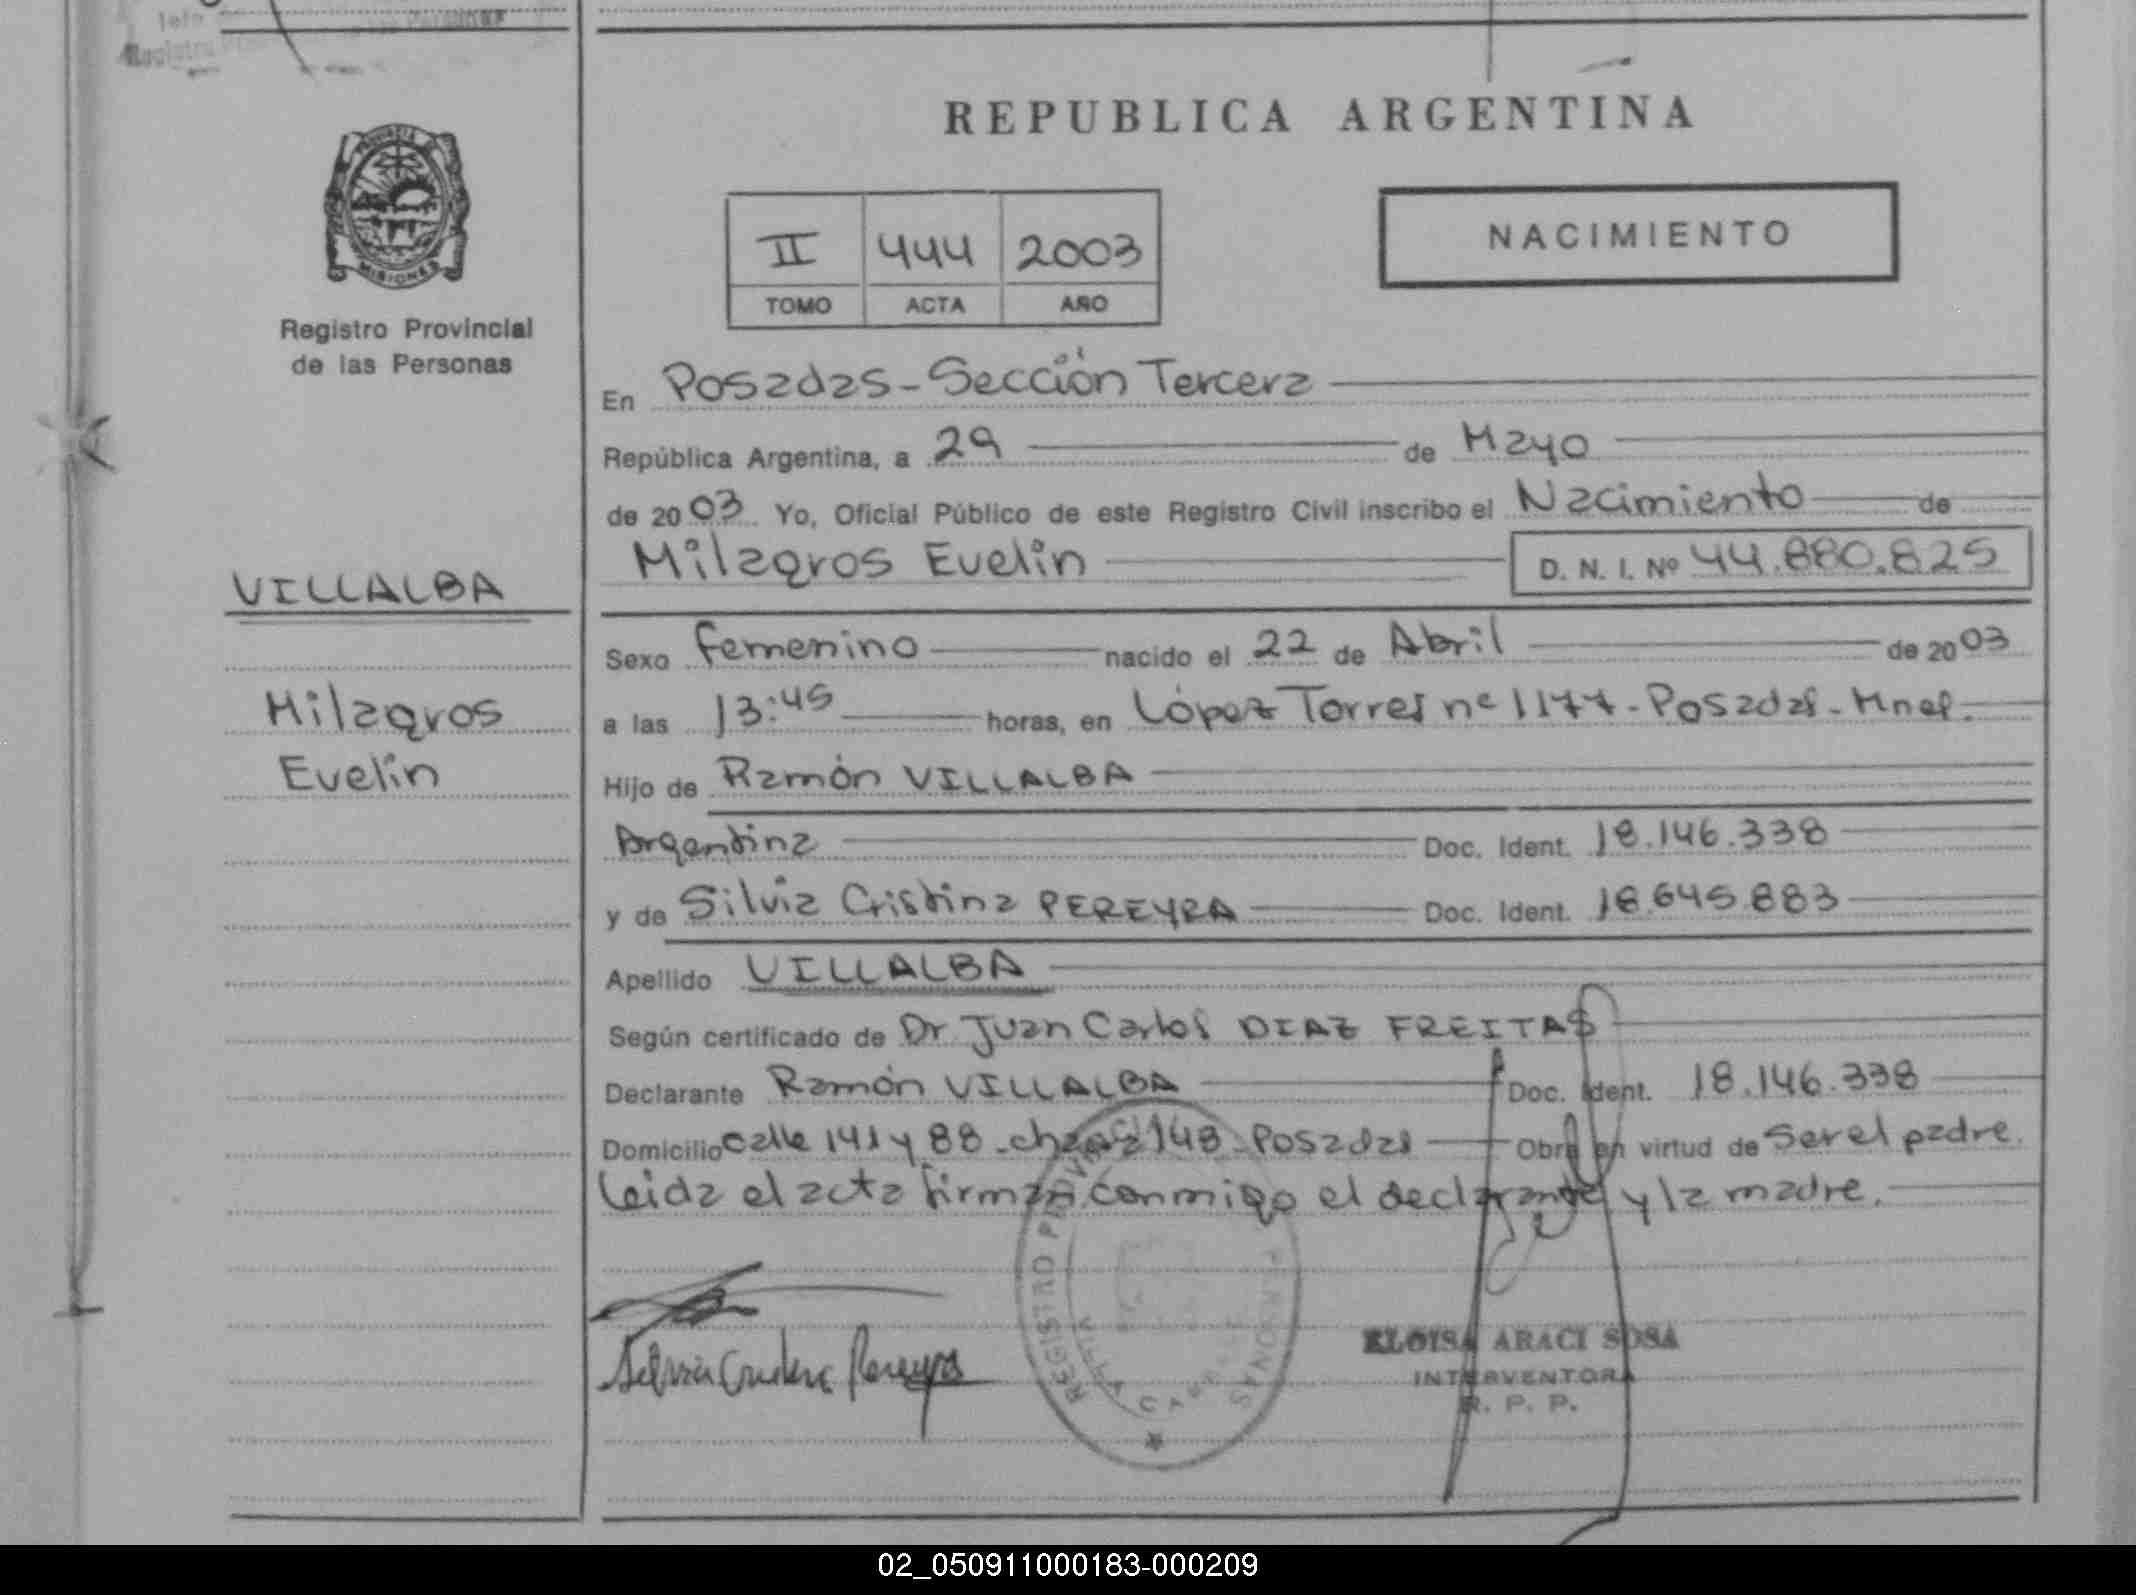 Registro
REPUBLICA ARGENTINA
MISIONES
II 444 2003
TOMO ACTA AÑO
NACIMIENTO
Registro Provincial
de las Personas
En Posadas - Sección Tercera
República Argentina, a 29 de Mayo
de 2003 Yo, Oficial Público de este Registro Civil inscribo el Nacimiento de
Milagros Evelin D. N. I. Nº 44.880.825
VILLALBA
Sexo femenino nacido el 22 de Abril de 2003
Milagros
a las 13:45 horas, en López Torres nº 1177 - Posadas - Mnes.
Evelin
Hijo de Ramón VILLALBA
Argentina Doc. Ident. 18.146.338
y de Silvia Cristina PEREYRA Doc. Ident. 18.645.883
Apellido VILLALBA
Según certificado de Dr. Juan Carlos DIAZ FREITAS
Declarante Ramón VILLALBA Doc. Ident. 18.146.338
Domicilio calle 141 y 88 - chacra 148 - Posadas Obra en virtud de Ser el padre.
Leida el acta firman conmigo el declarante y la madre.
REGISTRO PROVINCIAL PERSONAS
VILLA CABELLO
Silvia Cristina Pereyra
ELOISA ARACI SOSA
INTERVENTORA
R. P. P.
02_050911000183-000209